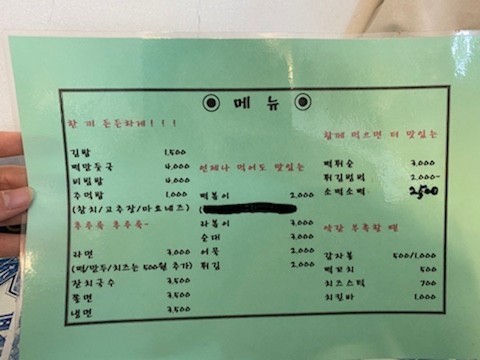 메뉴
한 끼 든든하게!!!
김밥 1,500
떡만둣국 4,000
비빔밥 4,000
주먹밥 1,000
(참치/고추장/마요네즈)
후루룩 후루룩~
라면 3,000
(떡/만두/치즈는 500원 추가)
잔치국수 3,500
쫄면 3,500
냉면 3,500
언제나 먹어도 맛있는
떡볶이 2,000
(
라볶이 3,000
순대 3,000
어묵 2,000
튀김 2,000
함께 먹으면 더 맛있는
떡튀순 7,000
튀김범벅 2,000-
소떡소떡 2,500
약간 부족할 때
감자볼 500/1,000
떡꼬치 500
치즈스틱 700
치킬바 1,000